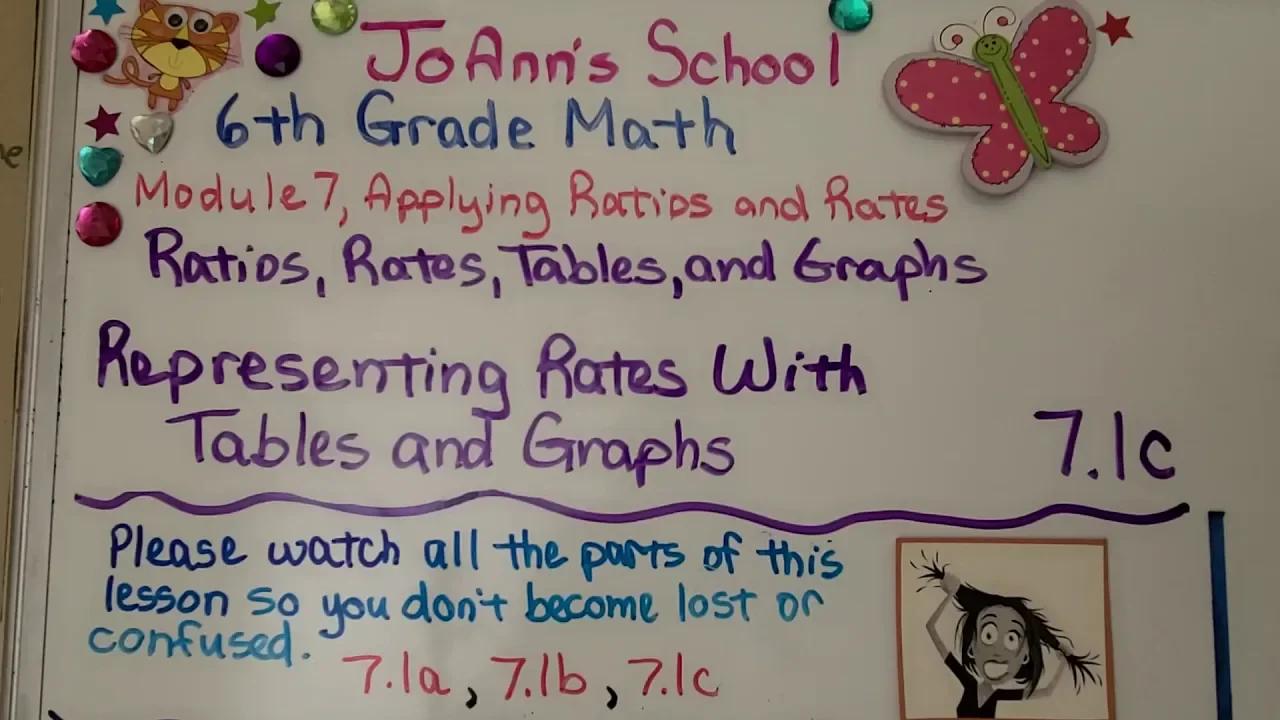 JoAnn's School
6th Grade Math
Module 7, Applying Ratios and Rates
Ratios, Rates, Tables, and Graphs
Representing Rates With
Tables and Graphs
7.1c
Please watch all the parts of this
lesson so you don't become lost or
confused.
7.1a, 7.1b, 7.1c